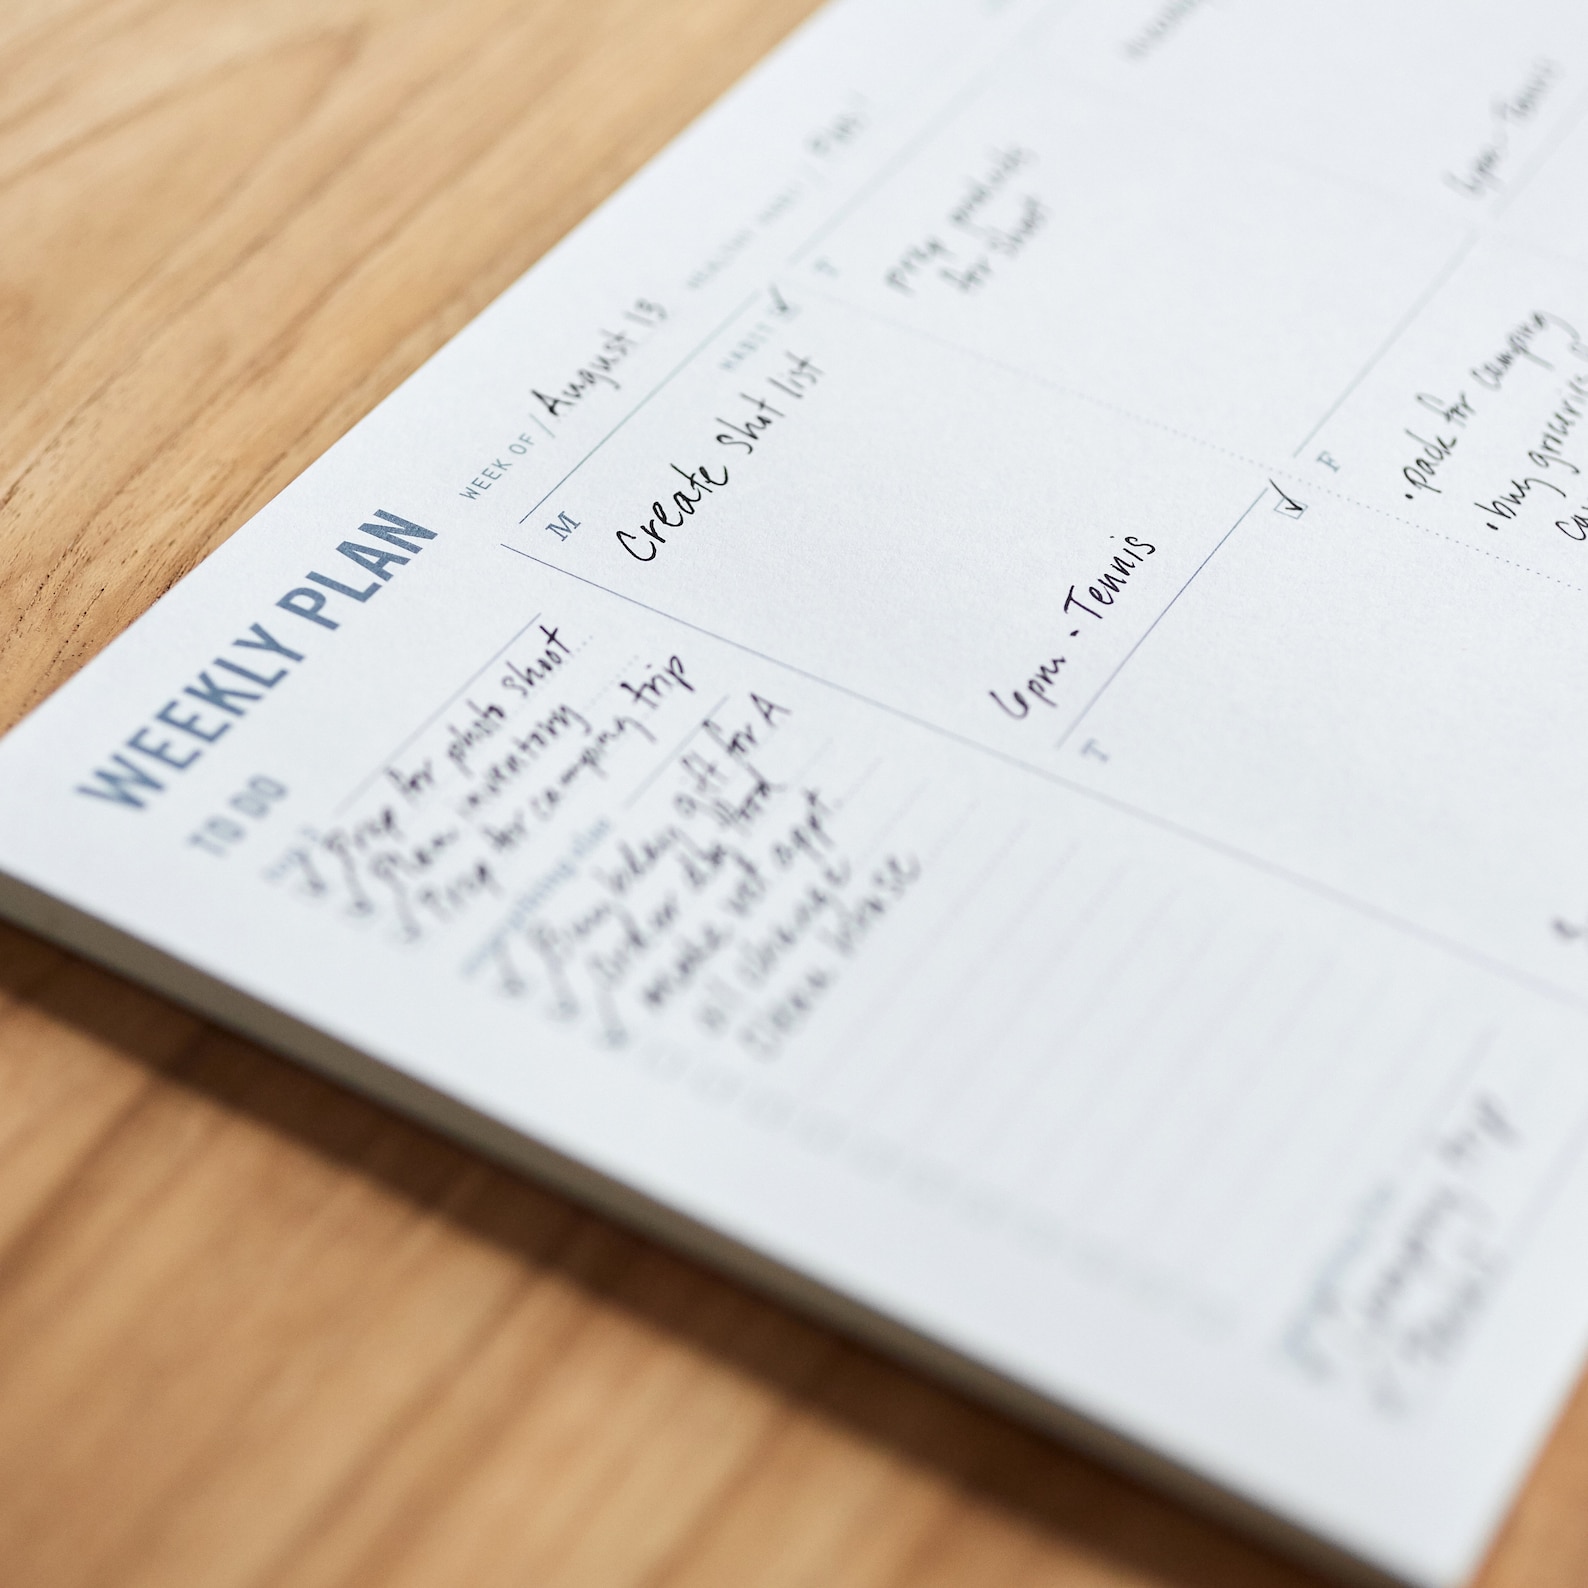 WEEKLY PLAN
WEEK OF / August 13
HABIT
M
Create shot list
6pm - Tennis
T
prep products
for shoot
6pm - Tennis
T
F
• pack for camping
• buy groceries
TO DO
Prep for photo shoot
Plan inventory
Prep for camping trip
everything else
Buy bday gift for A
order dog food
make vet appt
oil change